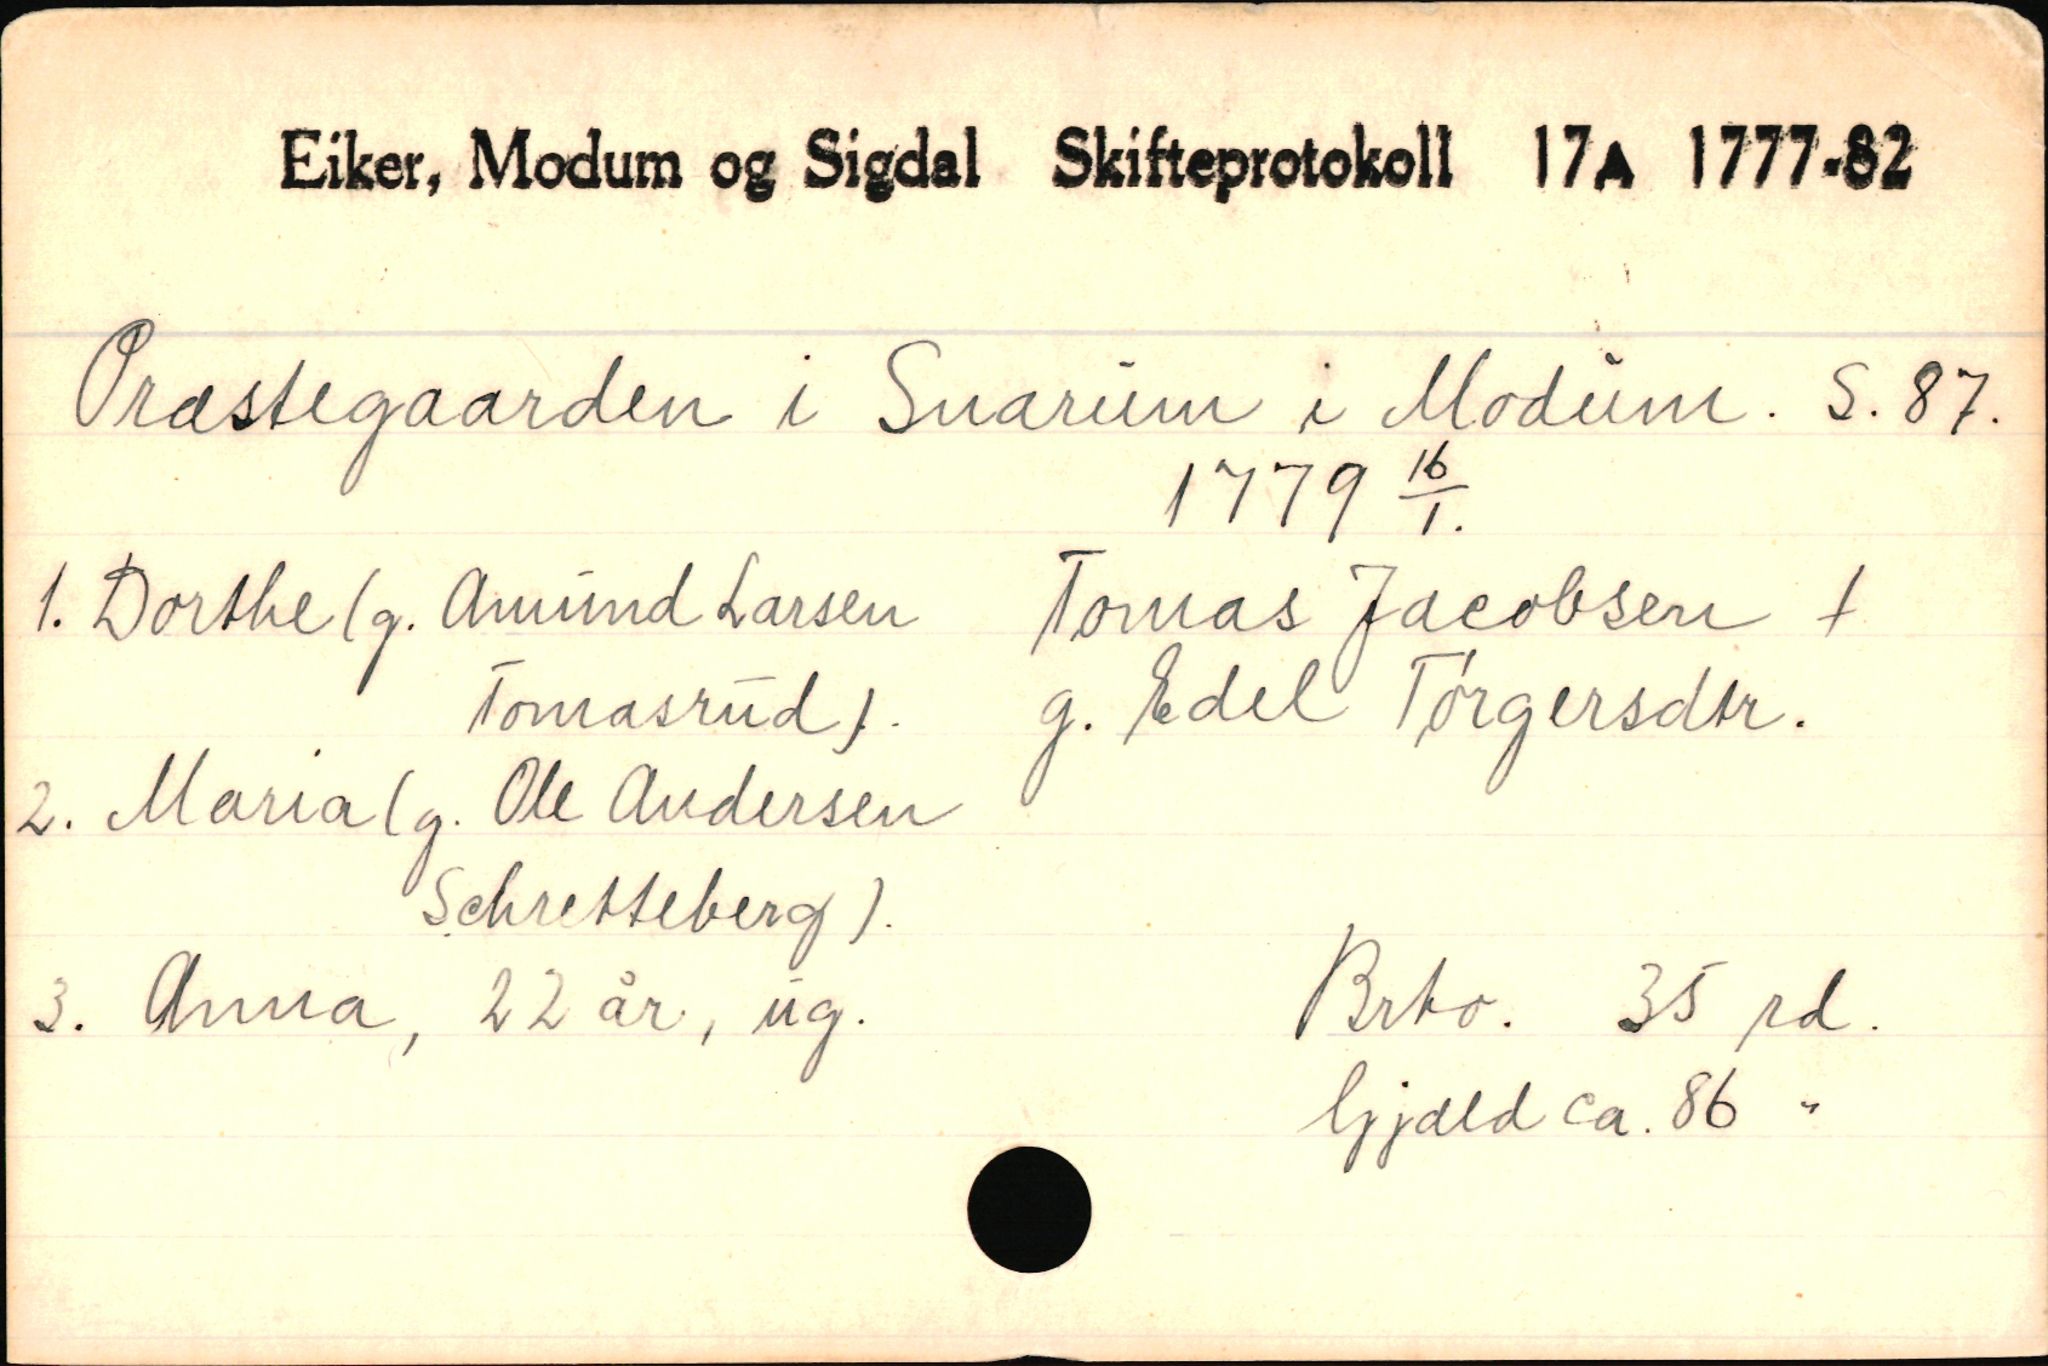 Eiker, Modum og Sigdal Skifteprotokoll 17A 1777-82
Præstegaarden i Snarum i Modum. S. 87.
1779 16/1.
1. Dorthe (g. Amund Larsen
Tomasrud).
Tomas Jacobsen †
g. Edel Törgersdtr.
2. Maria (g. Ole Andersen
Schretteberg).
3. Anna, 22 år, ug.
Brto. 35 rd.
Gjæld ca. 86 "